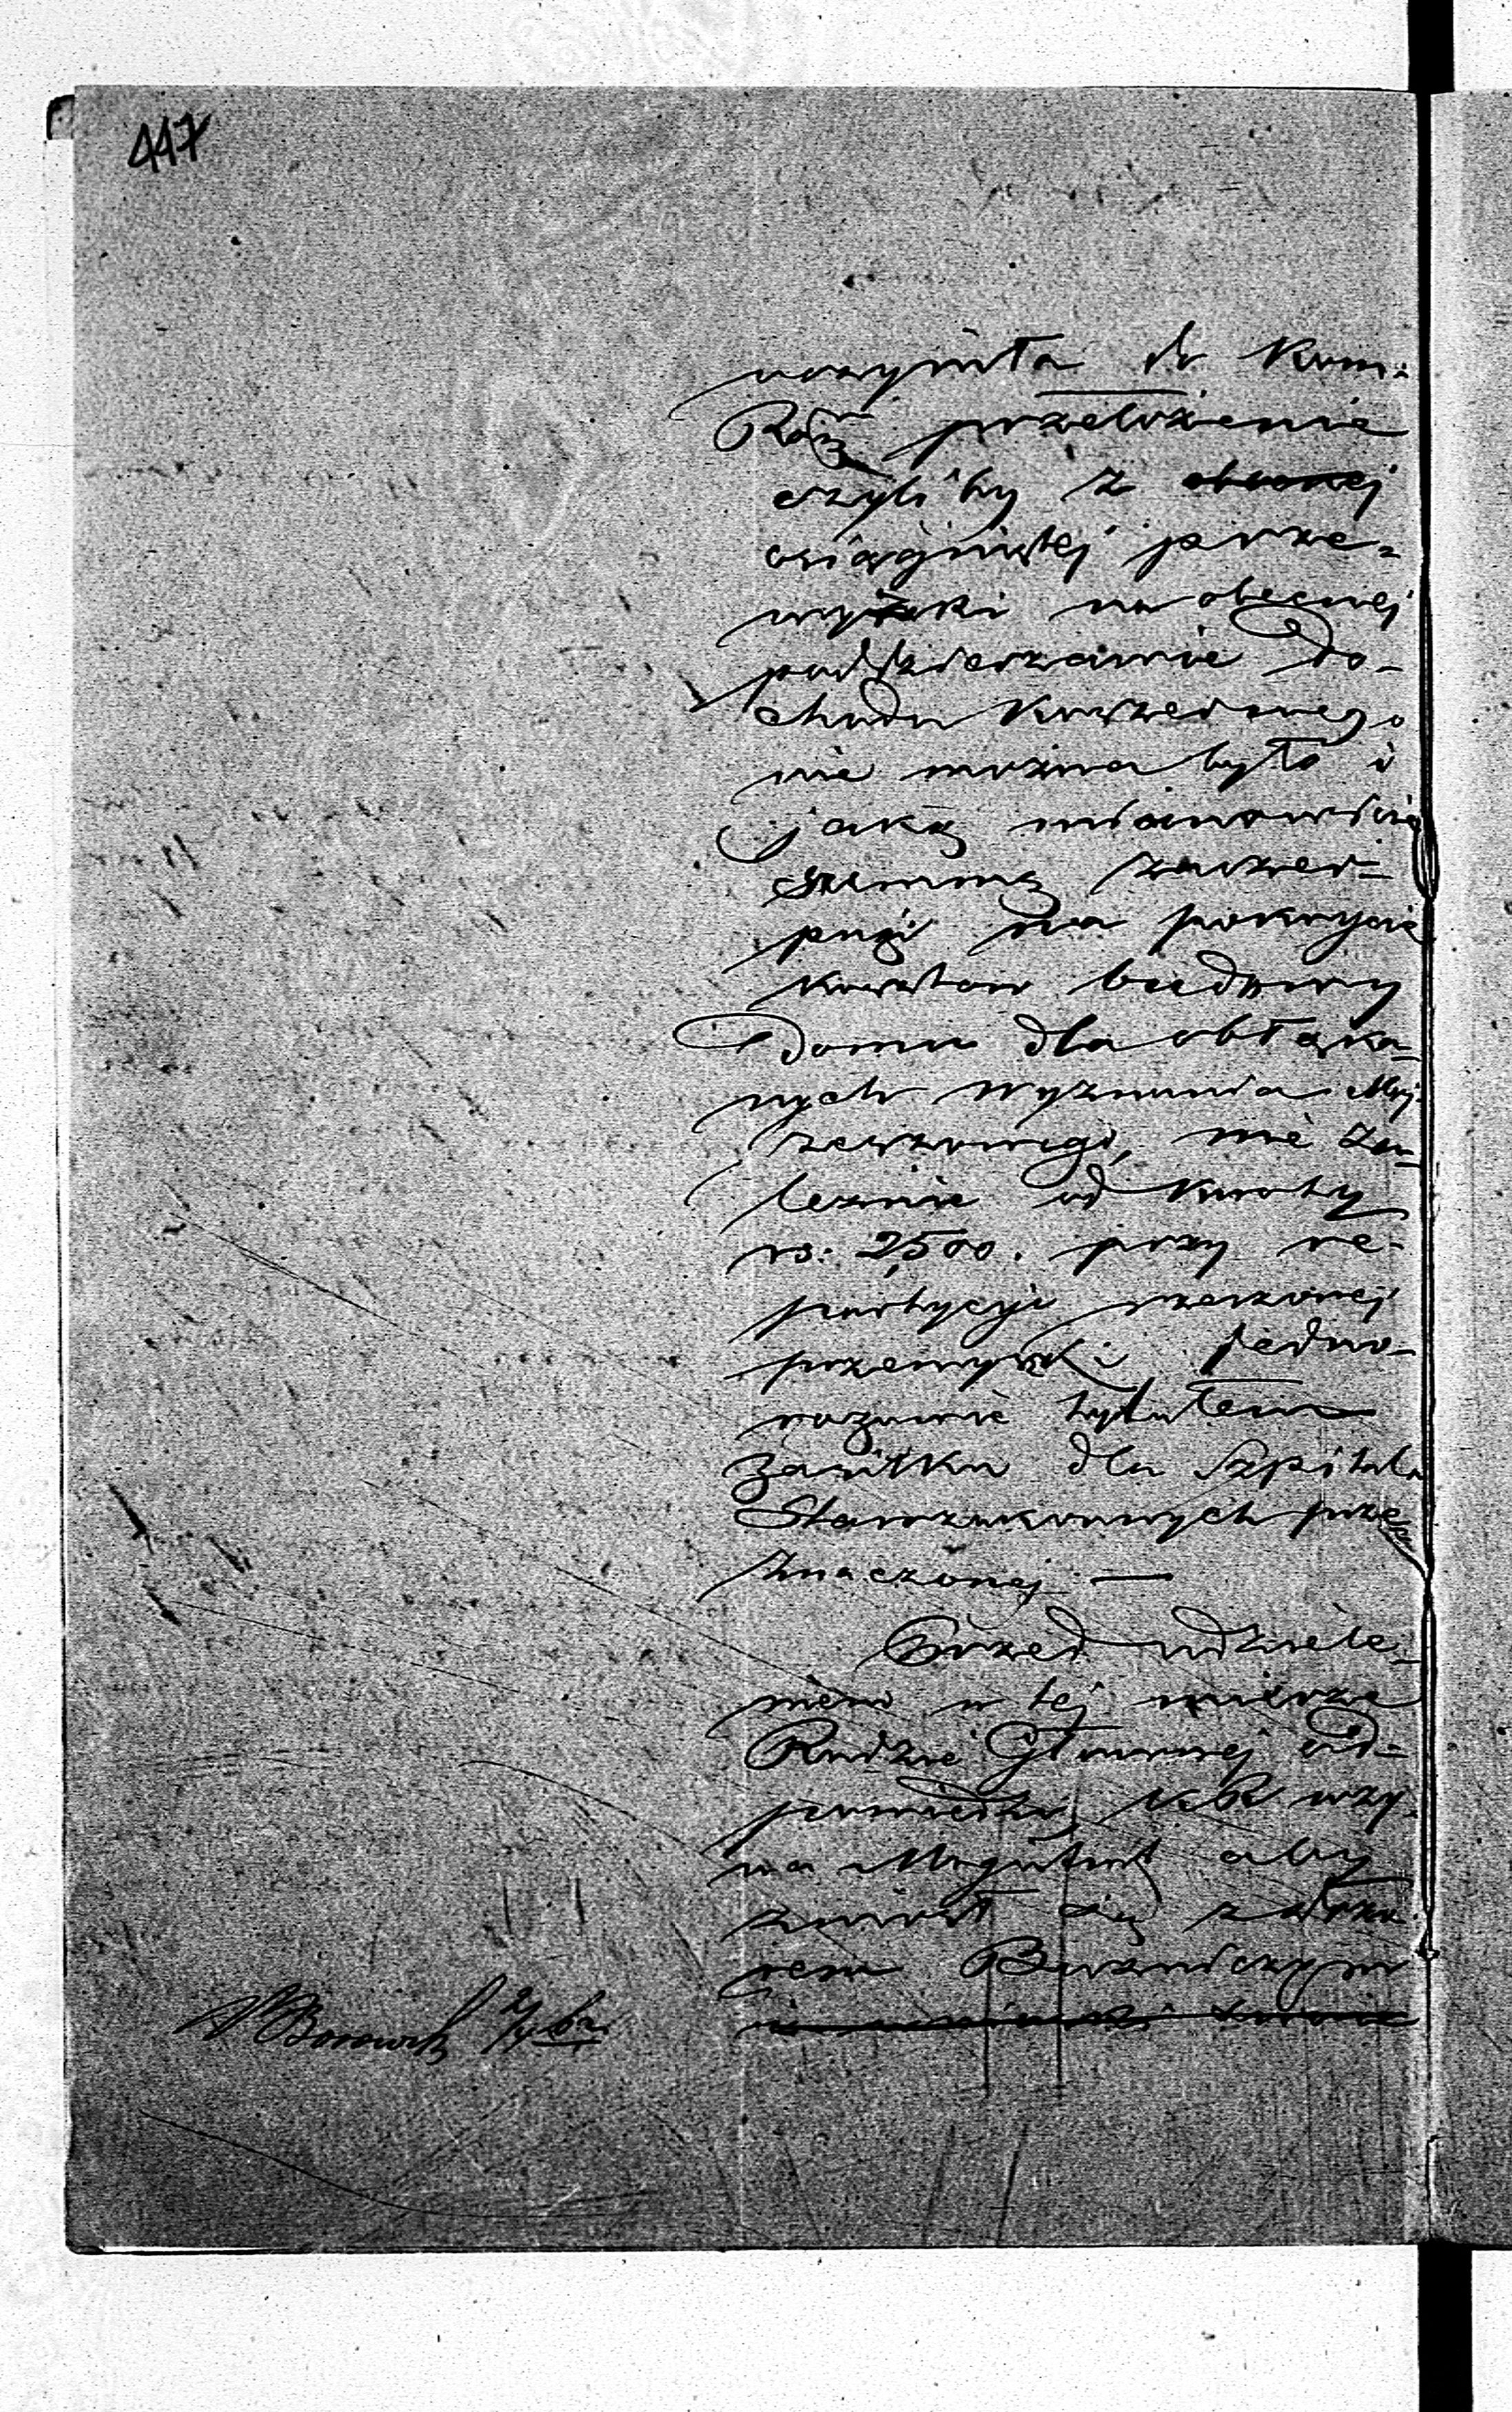 447
uczyniła do Kom:
Rząd przełożenie
czyliby z obecnej
osiągniętej prze-
wyżki na obecnej
poddzierżawie do-
chodu Koszernego
nie można było i
jaką mianowicie
summę zaczer-
pnąć na pokrycie
kosztów budowy
Domu dla obłąka-
nych wyznania Moj-
żeszowego, nie za-
leżnie od kwoty
rs: 2,500. przy re-
partycyi rzeczonej
przewyżki jedno-
razowie tytułem
zasiłku dla Szpitala
Starozakonnych prze
znaczonej —
Przed udziele-
niem w tej mierze
Radzie Głównej od-
powiedzi, KR wzy-
wa Magistrat aby
zniósł się z
rem Bożniczym
2/4 62